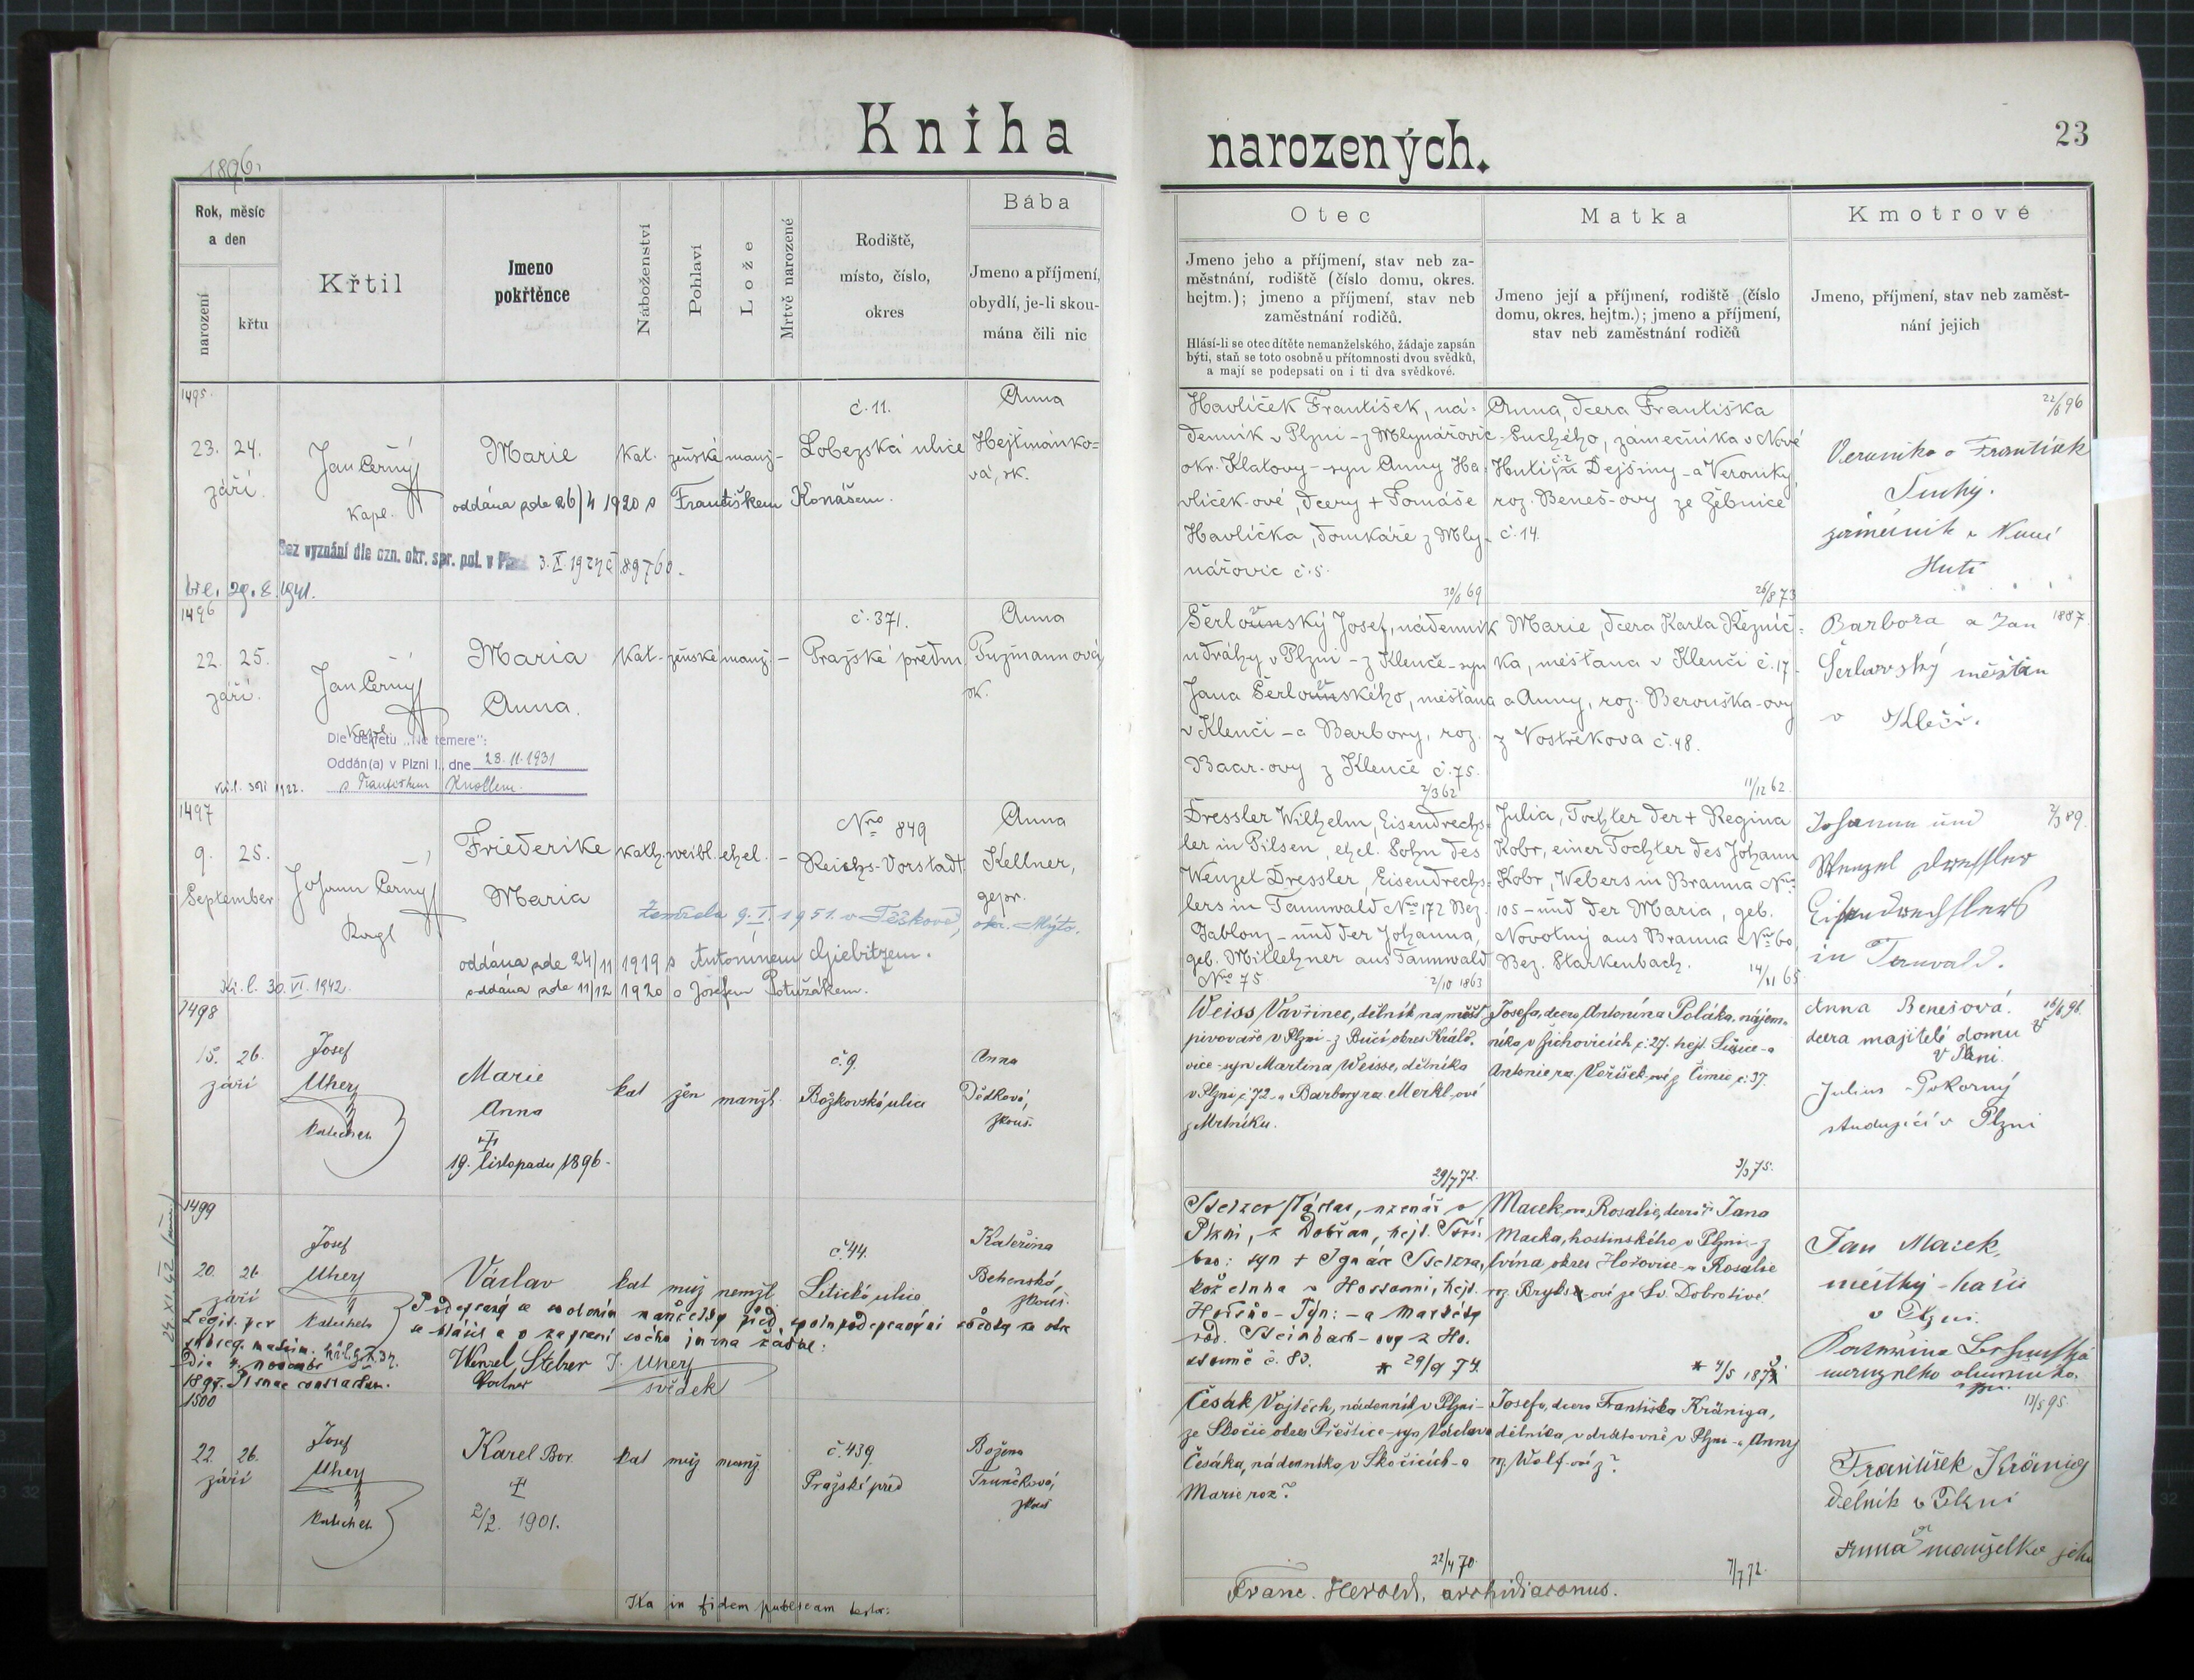 Kniha
narozených.
23
1896.
Rok, měsíc
a den
narození
křtu
Křtil
Jmeno
pokřtěnce
Náboženství
Pohlaví
Lože
Mrtvě narozené
Rodiště,
místo, číslo,
okres
Bába
Jmeno a příjmení,
obydlí, je-li skou-
mána čili nic
Otec
Jmeno jeho a příjmení, stav neb za-
městnání, rodiště (číslo domu, okres.
hejtm.); jmeno a příjmení, stav neb
zaměstnání rodičů.
Hlásí-li se otec dítěte nemanželského, žádaje zapsán
býti, staň se toto osobně u přítomnosti dvou svědků,
a mají se podepsati on i ti dva svědkové.
Matka
Jmeno její a příjmení, rodiště (číslo
domu, okres. hejtm.); jmeno a příjmení,
stav neb zaměstnání rodičů
Kmotrové
Jmeno, příjmení, stav neb zaměst-
nání jejich
1495.
23. 24.
září.
Jan Černý
Kapl.
Marie
kat. ženské manž. -
č. 11.
Lobezská ulice
Anna
Hejtmánko-
vá, zk.
oddána zde 26/4 1920 s Františkem Konášem.
Bez vyznání dle ozn. okr. spr. pol. v Plzni 3. X. 1927 č. 89760.
29. 8. 1941.
Havlíček František, ná-
denník v Plzni - z Mlynářovic
okr. Klatovy - syn Anny Ha-
vlíček-ové, dcery + Tomáše
Havlíčka, domkáře z Mly-
nářovic č. 5.
30/6 69
Anna, dcera Františka
Suchého, zámečníka v Nové
Huti, Dejšiny - a Veroniky
roz. Beneš-ovy ze Žebnice
č. 14.
26/8 73
22/6 96
Veronika a František
Suchý.
zámečník v Nové
Huti
1496
22. 25.
září.
Jan Černý
Kapl.
Maria
Anna.
kat. ženské manž. -
č. 371.
Pražské předm.
Anna
Pužmannová
zk.
Dle dekretu „Ne temere":
Oddán(a) v Plzni I., dne 28. 11. 1931
s Františkem Knollem.
Šerlovský Josef, nádenník
u dráhy v Plzni - z Klenče - syn
Jana Šerlovského, měšťana
v Klenči - a Barbory, roz.
Baar-ovy z Klenče č. 75.
2/3 62
Marie, dcera Karla Řezníč-
ka, měšťana v Klenči č. 17 -
a Anny, roz. Berouška-ovy
z Vostřekova č. 48.
11/12 62.
Barbora a Jan 1887.
Šerlovský měštan
v Kleči.
1497
9. 25.
September
Johann Černý
Kapl
Friederike
Maria
kath. weibl. ehel. -
Nro 849
Reichs-Vorstadt
Anna
Kellner,
gepr.
Zemřela 9. I. 1951. v Těškově, okr. Mýto.
oddána zde 24/11 1919 s Antonínem Gjebitzem.
oddána zde 11/12 1920 s Josefem Potužákem.
Kř. l. 30. VI. 1942.
Dressler Wilhelm, Eisendrechs-
ler in Pilsen, ehel. Sohn des
Wenzel Dressler, Eisendrechs-
lers in Tannwald Nro 172 Bez.
Gablonz - und der Johanna,
geb. Mitlehner aus Tannwald
No 75
2/10 1863
Julia, Tochter der + Regina
Kobr, einer Tochter des Johann
Kobr, Webers in Branna Nro
105 - und der Maria, geb.
Novotny aus Branna Nro 60,
Bez. Starkenbach.
14/11 65
2/3 89.
Johann und
Wenzel Dressler
Eisendrechslers
in Tanwald.
1498
15. 26.
září
Josef
Uherz
katechet
Marie
Anna
19. listopadu 1896.
kat žen manžl.
č. 9.
Božkovská ulice
Anna
Dědková,
zkouš.
Weiss Vavřinec, dělník na měšť.
pivováře v Plzni - z Bučí okres Králo-
vice - syn Martina Weisse, dělníka
v Plzni č. 72 - a Barbory roz. Merkl-ové
z Mrtníku.
29/7 72.
Josefa, dcera Antonína Poláka, nájem-
níka v Žichovicích č. 27. hejt. Sušice - a
Antonie roz. Voříšek-ové z Čimic č. 37.
3/3 75.
Anna Benešová.
dcera majitele domu
v Plzni.
Julius Pokorný
studující v Plzni
1499
20. 26
září
Josef
Uherz
katechet
Václav
kat muž nemžl.
č. 44.
Letická ulice
Kateřina
zkouš.
Legit. per
subseq. matrim.
die 4. novembr
1897. Pilsnae contractum.
Wenzel Stelzer
J. Uherz
svědek
Stelzer Václav, v
Plzni, z Dobřan, hejt. Stří-
bro: syn + Ignáce Stelzera,
29/9 74.
Macek-ova Rosalie, dcera Jana
Macka, hostinského v Plzni - z
okres Hořovice - a Rosalie
ze Sv. Dobrotivé.
Jan Macek,
v Plzni.
1500
22. 26.
září
Josef
Uherz
katechet
Karel Bor.
2/2. 1901.
kat muž manž.
č. 439.
Pražské před
Božena
Trunečková,
zkouš
Česák Vojtěch, nádenník v Plzni -
ze Skočic okres Přeštice - syn Václava
Česáka, nádenníka v Skočicích - a
Marie roz?
22/4 70.
Josefa, dcera Františka Kräniga,
dělníka v drátovně v Plzni - a Anny
roz. Wolf-ové z?
7/7 72.
13/5 95.
František Kränig
dělník v Plzni
Anna manželka jeho
Ita in fidem publicam testor:
Franc. Herold, archidiaconus.